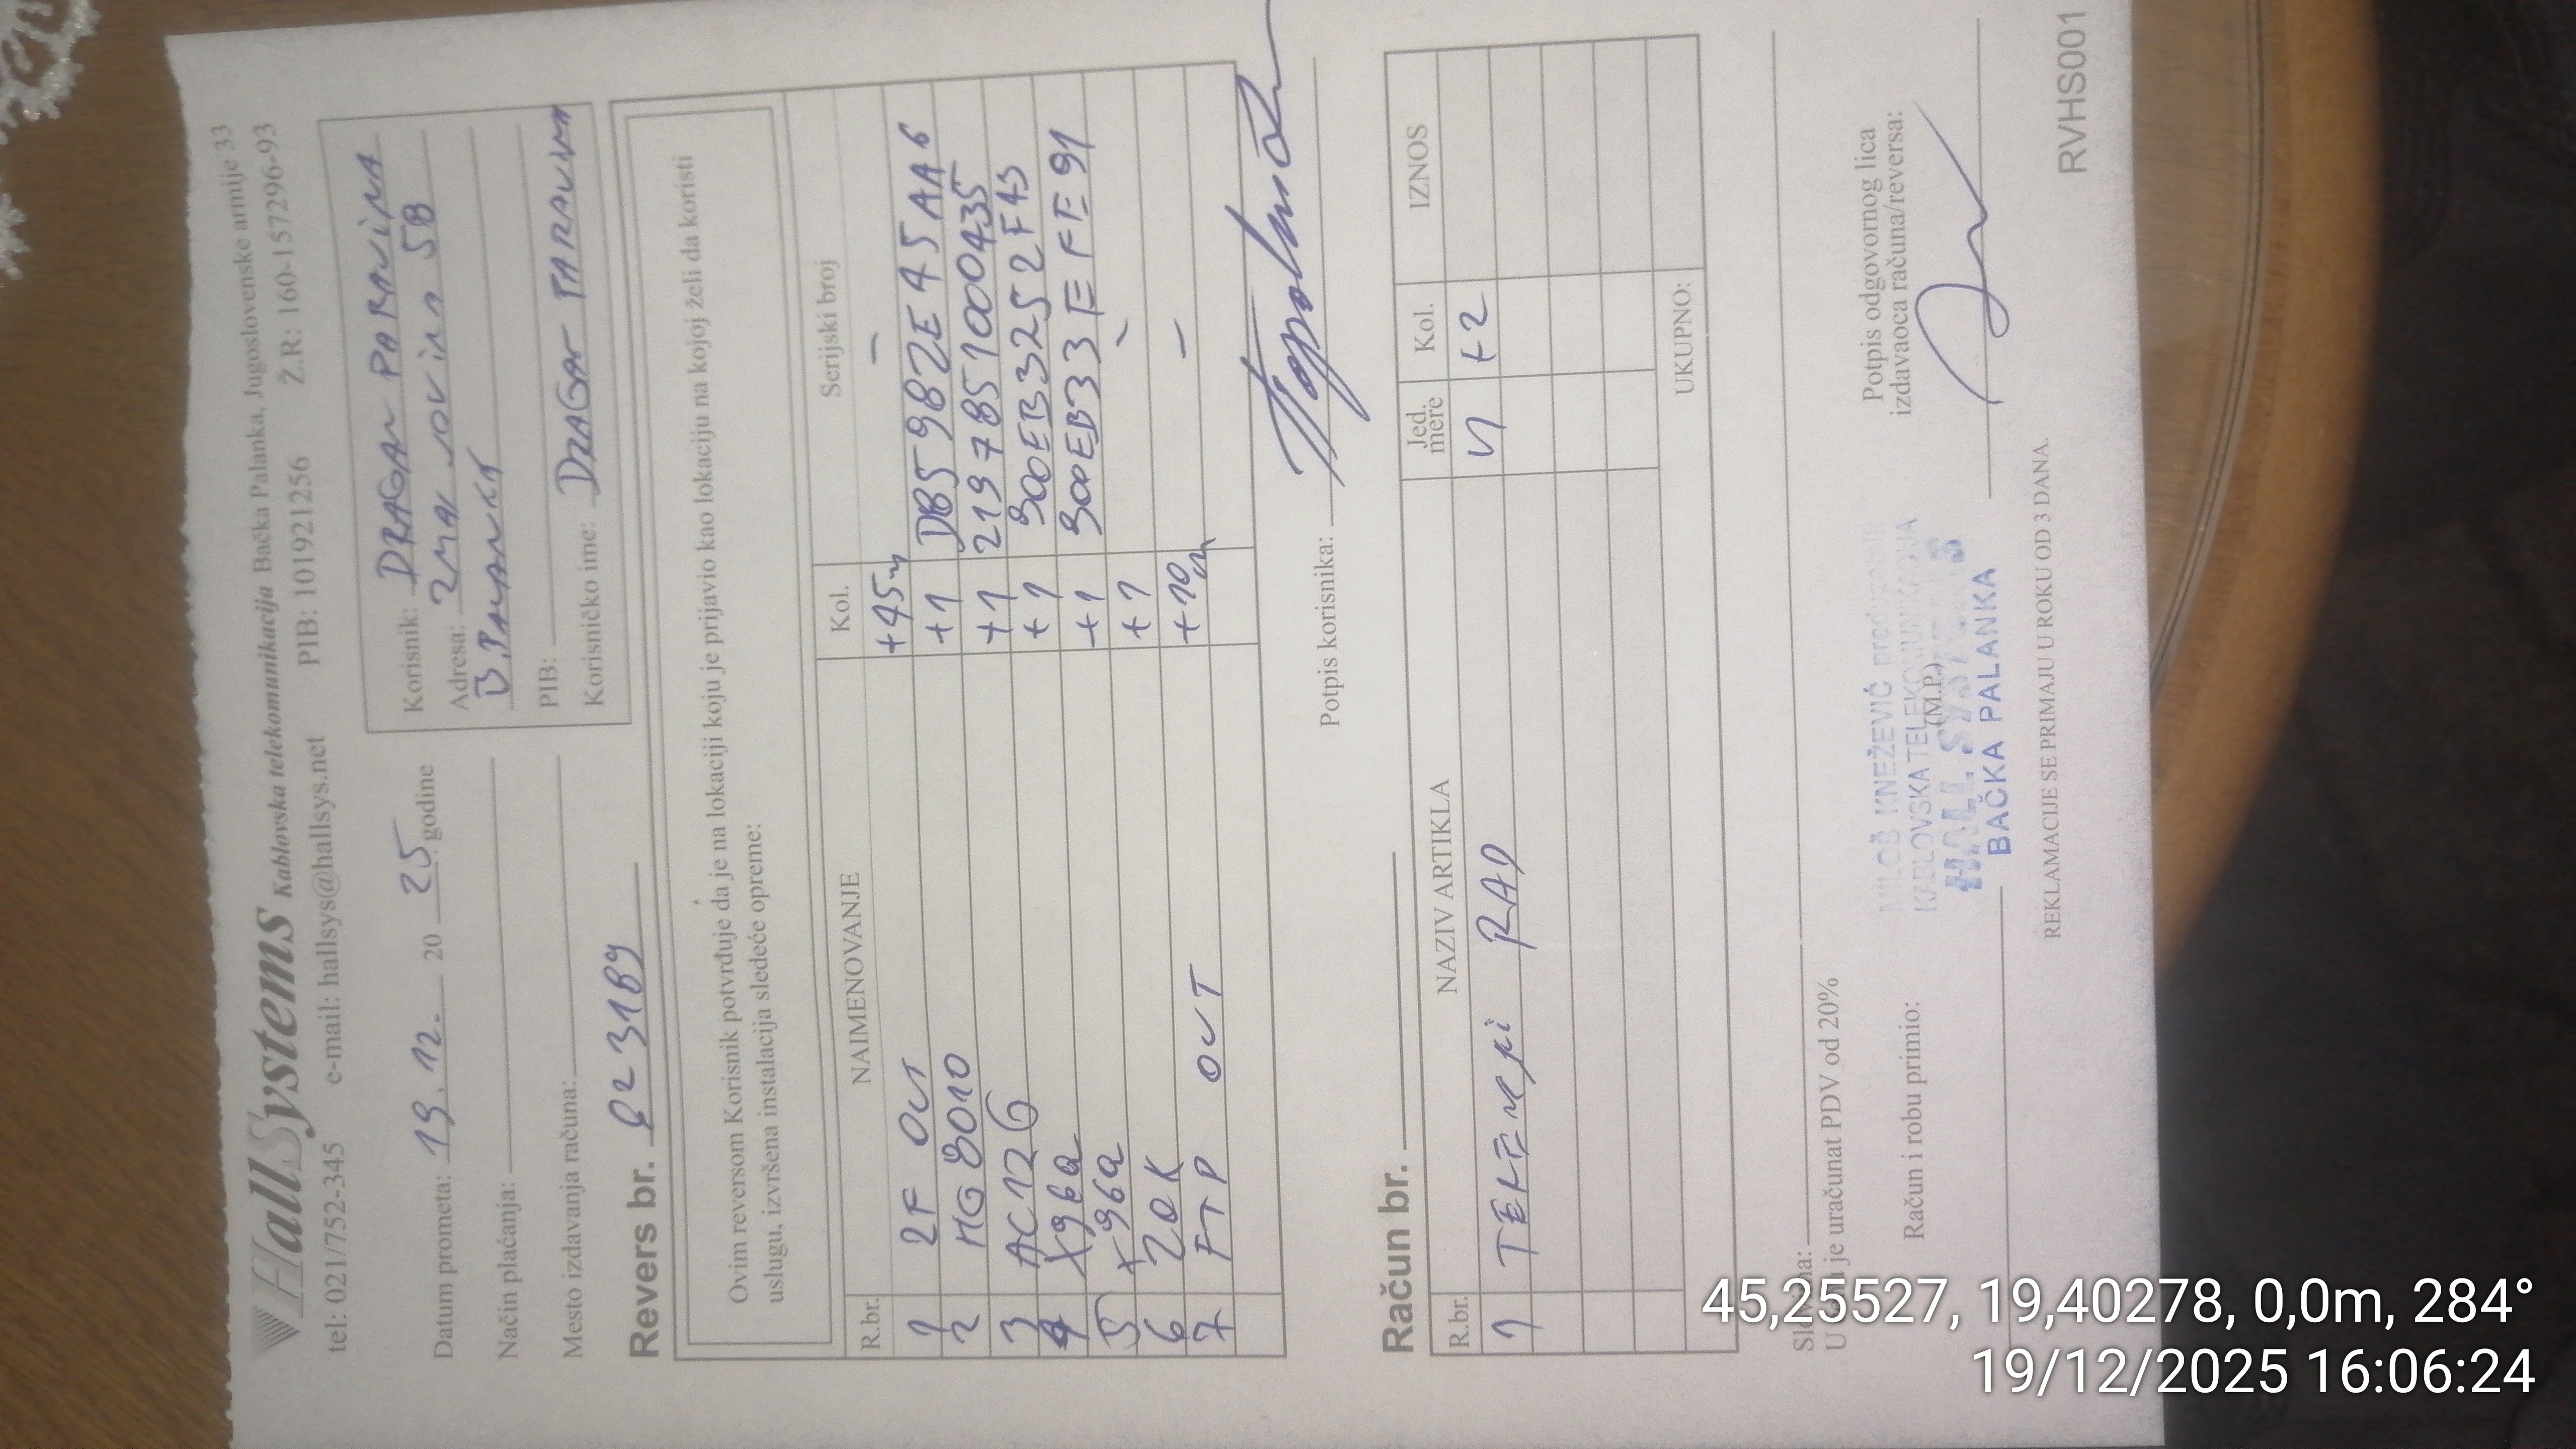 HallSystems Kablovska telekomunikacija Bačka Palanka, Jugoslovenske armije 33
tel: 021/752-345 e-mail: hallsys@hallsys.net PIB: 101921256 Ž.R: 160-157296-93
Datum prometa: 19.12. 20 25 godine
Način plaćanja:
Mesto izdavanja računa:
Korisnik: DRAGAN
Adresa: ZMAJ JOVINA 58
B. PALANKA
PIB:
Korisničko ime: DRAGAN
Revers br. 23189
Ovim reversom Korisnik potvrđuje da je na lokaciji koju je prijavio kao lokaciju na kojoj želi da koristi
uslugu, izvršena instalacija sledeće opreme:
R.br. NAIMENOVANJE Kol. Serijski broj
1 2F OUT +45m —
2 HG8010 +1 DB5982E45AA6
3 AC12G +1 2197851000435
4 X96a +1 300EB3252F43
5 X96a +1 300EB33EFE91
6 ZOK +1 -
7 FTP OUT +10m —
Potpis korisnika:
Račun br.
R.br. NAZIV ARTIKLA Jed. mere Kol. IZNOS
1 TERENSKI RAD h +2
UKUPNO:
U je uračunat PDV od 20%
Račun i robu primio:
(M.P.)
MILOŠ KNEŽEVIĆ
KABLOVSKA TELEKOMUNIKACIJA
HALL SYSTEMS
BAČKA PALANKA
Potpis odgovornog lica
izdavaoca računa/reversa:
REKLAMACIJE SE PRIMAJU U ROKU OD 3 DANA.
RVHS001
45,25527, 19,40278, 0,0m, 284°
19/12/2025 16:06:24